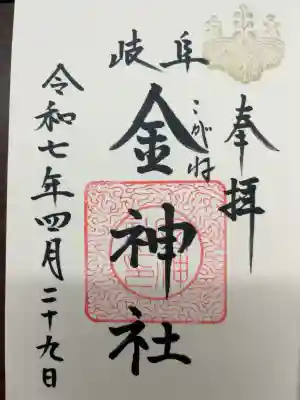 奉拝
岐阜
こがね
金神社
令和七年四月二十九日